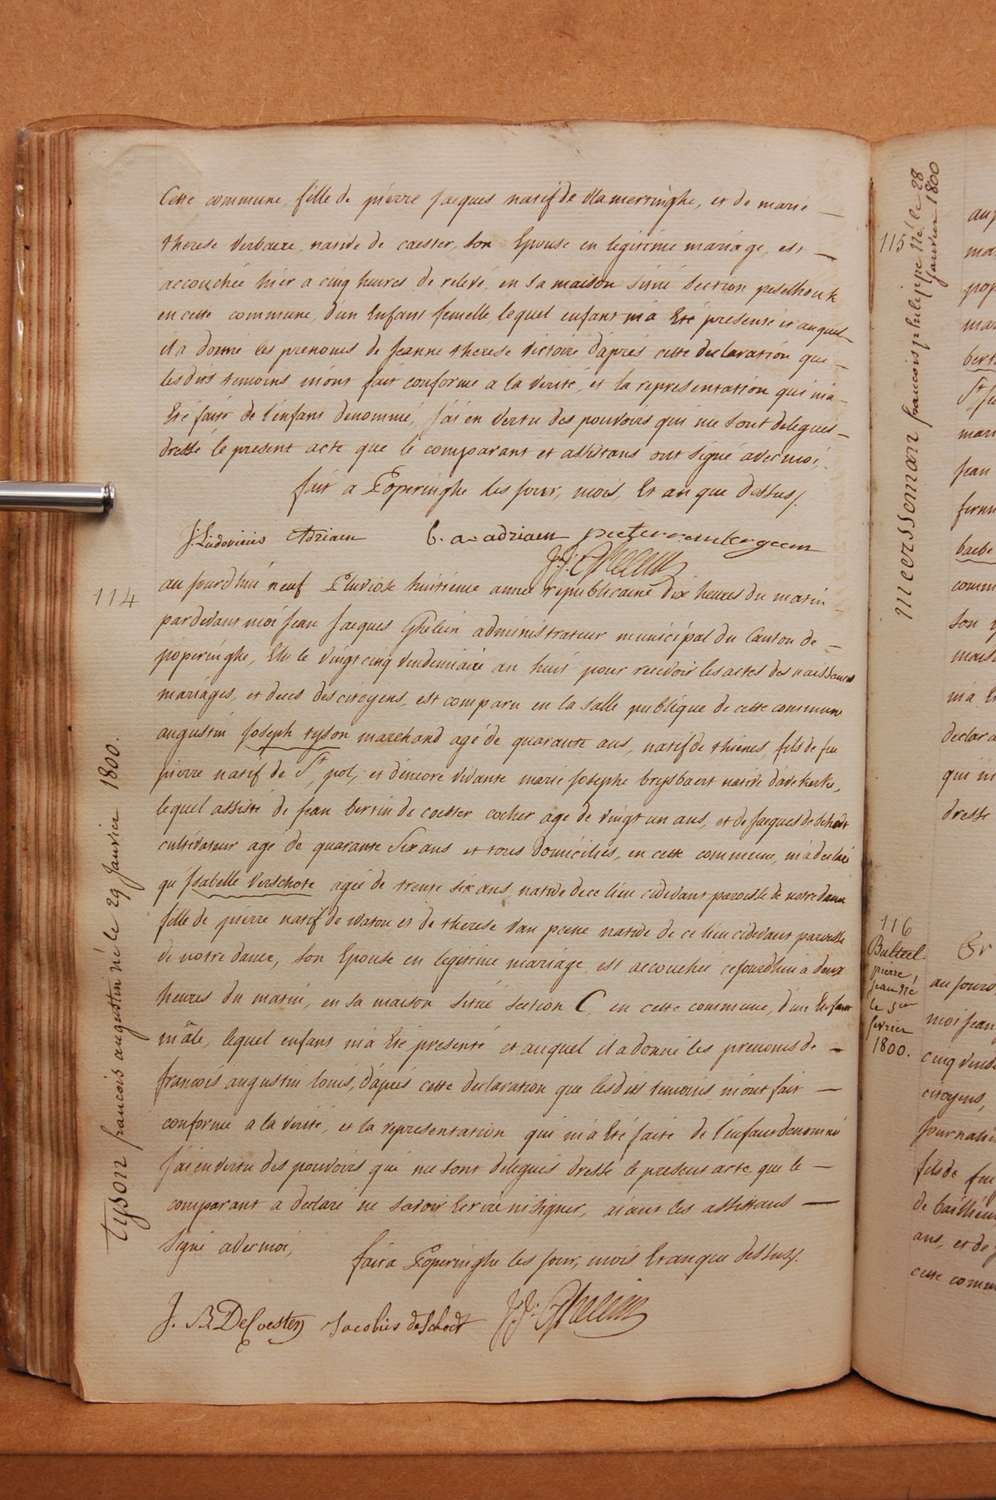 Cette commune, fille de pierre Jacques natif de vlamertinghe, et de marie
therese verbaere, native de caester, son Epouse en legitime mariage, est
accouchée hier a cinq heures de relevé, en sa maison situé section peselhoek
en cette commune, d'un Enfant femelle, lequel enfant m'a Eté presenté et auquel
il a donné les prenoms de Jeanne therese victoire d'apres cette declaration que
lesdits temoins m'ont fait conforme a la verité, et la representation qui m'a
Eté fait de l'enfant denommé, j'ai en vertu des pouvoirs qui me sont delegues
dressé le present acte que le comparant et assistans ont signé avec moi,
fait a Poperinghe les jour, mois, et an que dessus.
J: Ludovicus Adriaen b. a. adriaen pieter
J: J: Ghelein
114
au jourd'hui neuf Pluviose huitieme année republicaine dix heures du matin
pardevant moi Jean Jacques Ghelein administrateur municipal du Canton de
poperinghe, Elu le vingt cinq vendemiaire an huit pour recevoir les actes des naissances
mariages, et deces des citoyens, est comparu en la salle publique de cette commune
augustin Joseph tyson marchand agé de quarante ans, natif de thienes fils de feu
pierre natif de St pol, et d'encore vivante marie Josephe breysbaert native
lequel assisté de Jean bertin de coester cocher age de vingt un ans, et de Jacques de schodt
cultivateur age de quarante six ans et tous domiciliés, en cette commune, m'a declaré
que Isabelle verschote agée de trente six ans, native de ce lieu cidevant paroisse de notre dame
fille de pierre natif de watou et de therese van peene native de ce lieu cidevant paroisse
de notre dame, son Epouse en legitime mariage, est accouchée cejourdhui a deux
heures du matin, en sa maison situé section C, en cette commune, d'un Enfant
mâle, lequel enfant m'a Eté presenté et auquel il a donné les prenoms de
francois augustin louis, d'après cette declaration que lesdits temoins m'ont fait
conforme a la verité, et la representation qui m'a Eté faite de l'enfant denommé
J'ai en vertu des pouvoirs qui me sont delegués dressé le present acte que le
comparant a declaré ne savoir Ecrire ni signer, aiant les assistans
signé avec moi,
fait a Poperinghe les jour, mois et an que dessus.
J. B DeCoester Jacobus deSchodt J: J: Ghelein
tyson francois augustin né le 29 Janvier 1800.
115
Meersseman francois philippe né le 28
Janvier 1800
116
Bulteel
pierre,
le 5
fevrier
1800.
au jourd
moi jean
citoyens,
journali
fils de feu
ans, et de
cette comm